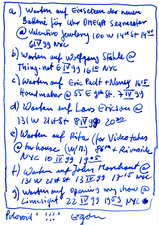 a) Warten auf Einsetzen der neuen
Batterie für Uhr OMEGA Seamaster
@ Valentino Jewelers 100 W 14th St
6 IV 99 NYC
b) Warten auf Wolfgang Staehle @
Thing.net 6 IV 99 16 15 NYC
c) Warten auf Eric
@ 55 E 9th St. 7 IV 99
d) Warten auf Lars Ericson @
131 W 21 St 8 IV 99 20 00
e) Warten auf Rita (for Videotapes)
@ her house 86th + Riverside
NYC 10 IV 99 19 05
f) Warten auf John
131 W 21 St 13 IV 99 17 15 NYC
g) Warten auf opening my show @
Limelight 22 IV 99 NYC
Polaroid !!!